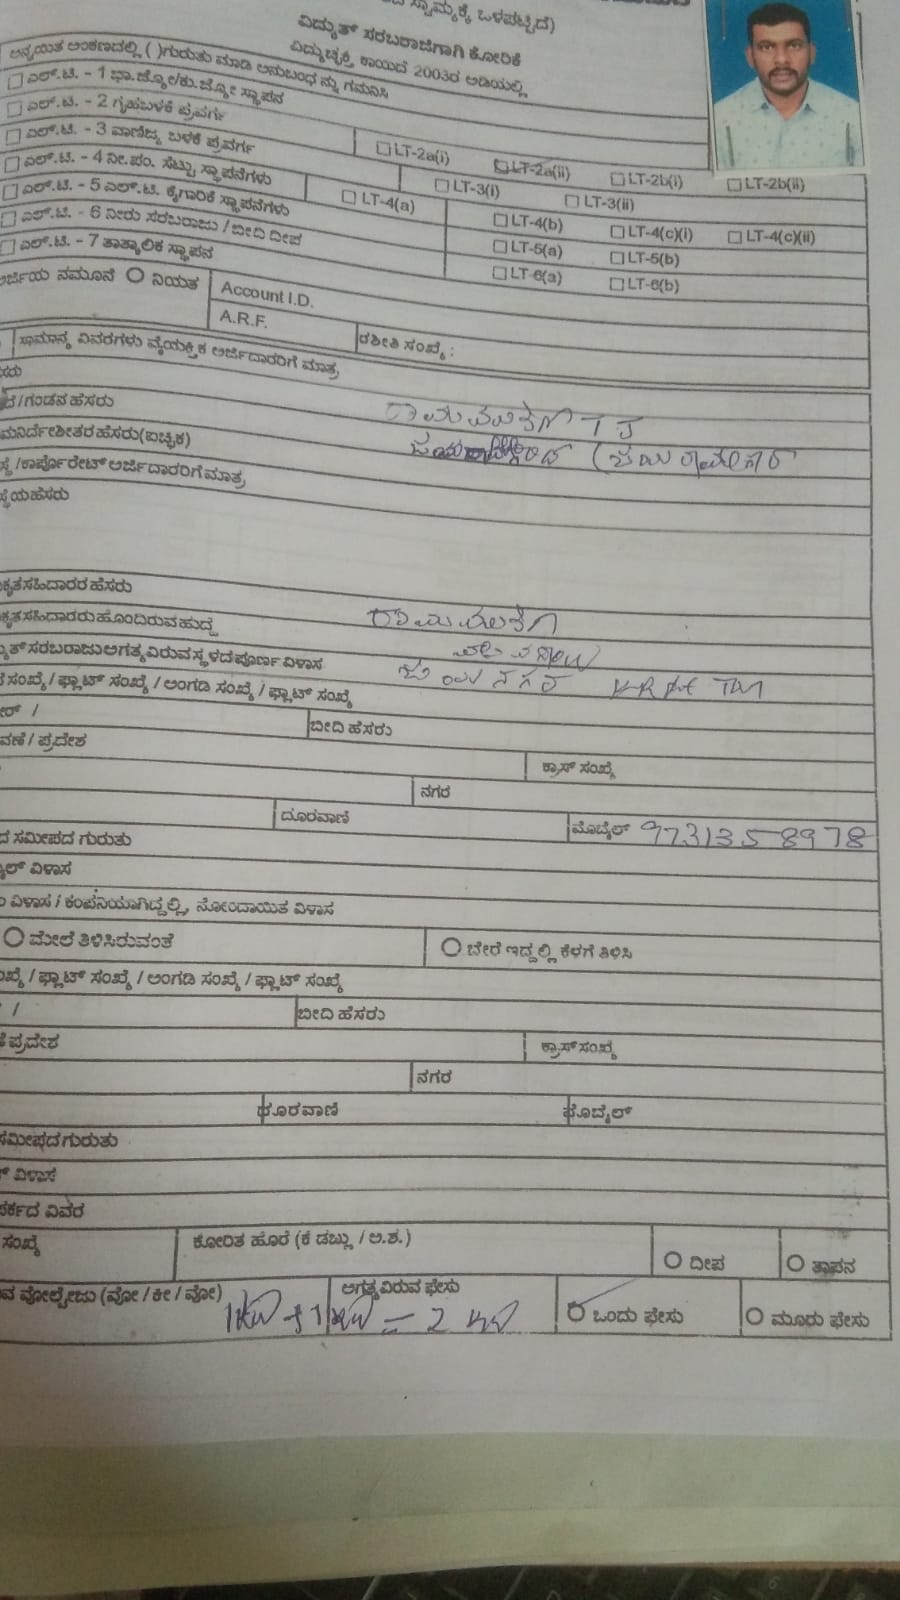 ಸ್ವಾಮ್ಯಕ್ಕೆ ಒಳಪಟ್ಟಿದೆ)
ವಿದ್ಯುತ್ ಸರಬರಾಜಿಗಾಗಿ ಕೋರಿಕೆ
ವಿದ್ಯುಚ್ಛಕ್ತಿ ಕಾಯಿದೆ 2003ರ ಅಡಿಯಲ್ಲಿ
ಅನ್ವಯಿತ ಅಂಕಣದಲ್ಲಿ ( )ಗುರುತು ಮಾಡಿ ಅನುಬಂಧ ನ್ನು ಗಮನಿಸಿ
ಎಲ್.ಟಿ. - 1 ಭಾ.ಜ್ಯೋ/ಕು.ಜ್ಯೋ ಸ್ಥಾಪನ
ಎಲ್.ಟಿ. - 2 ಗೃಹಬಳಕೆ ಪ್ರವರ್ಗ LT-2a(i) LT-2a(ii) LT-2b(i) LT-2b(ii)
ಎಲ್.ಟಿ. - 3 ವಾಣಿಜ್ಯ ಬಳಕೆ ಪ್ರವರ್ಗ LT-3(i) LT-3(ii)
ಎಲ್.ಟಿ. - 4 ನೀ.ಪಂ. ಸೆಟ್ಟು ಸ್ಥಾಪನೆಗಳು LT-4(a) LT-4(b) LT-4(c)(i) LT-4(c)(ii)
ಎಲ್.ಟಿ. - 5 ಎಲ್.ಟಿ. ಕೈಗಾರಿಕೆ ಸ್ಥಾಪನೆಗಳು LT-5(a) LT-5(b)
ಎಲ್.ಟಿ. - 6 ನೀರು ಸರಬರಾಜು / ಬೀದಿ ದೀಪ LT-6(a) LT-6(b)
ಎಲ್.ಟಿ. - 7 ತಾತ್ಕಾಲಿಕ ಸ್ಥಾಪನ
ಅರ್ಜಿಯ ನಮೂನೆ ನಿಯತ Account I.D.
A.R.F. ರಶೀತಿ ಸಂಖ್ಯೆ :
ಸಾಮಾನ್ಯ ವಿವರಗಳು ವೈಯಕ್ತಿಕ ಅರ್ಜಿದಾರರಿಗೆ ಮಾತ್ರ
ಸರು
ದೆ/ಗಂಡನ ಹೆಸರು
ಮನಿರ್ದೇಶೀತರ ಹೆಸರು(ಐಚ್ಛಿಕ)
ಸ್ಥೆ /ಕಾರ್ಪೊರೇಟ್ ಅರ್ಜಿದಾರರಿಗೆ ಮಾತ್ರ
ಸ್ಥೆಯ ಹೆಸರು
ಕೃತಸಹಿದಾರರ ಹೆಸರು
ಕೃತಸಹಿದಾರರು ಹೊಂದಿರುವ ಹುದ್ದೆ
ತ್ ಸರಬರಾಜು ಅಗತ್ಯವಿರುವ ಸ್ಥಳದ ಪೂರ್ಣ ವಿಳಾಸ
ಸಂಖ್ಯೆ / ಫ್ಲಾಟ್ ಸಂಖ್ಯೆ / ಅಂಗಡಿ ಸಂಖ್ಯೆ / ಫ್ಲಾಟ್ ಸಂಖ್ಯೆ
/ ಬೀದಿ ಹೆಸರು
ವಣೆ / ಪ್ರದೇಶ
ಕ್ರಾಸ್ ಸಂಖ್ಯೆ
ನಗರ
ದೂರವಾಣಿ ಮೊಬೈಲ್ 9731358978
ದ ಸಮೀಪದ ಗುರುತು
ಲ್ ವಿಳಾಸ
ವಿಳಾಸ / ಕಂಪನಿಯಾಗಿದ್ದಲ್ಲಿ, ನೋಂದಾಯಿತ ವಿಳಾಸ
ಮೇಲೆ ತಿಳಿಸಿರುವಂತೆ ಬೇರೆ ಇದ್ದಲ್ಲಿ ಕೆಳಗೆ ತಿಳಿಸಿ
ಖ್ಯೆ / ಫ್ಲಾಟ್ ಸಂಖ್ಯೆ / ಅಂಗಡಿ ಸಂಖ್ಯೆ / ಫ್ಲಾಟ್ ಸಂಖ್ಯೆ
/ ಬೀದಿ ಹೆಸರು
ಪ್ರದೇಶ ಕ್ರಾಸ್ ಸಂಖ್ಯೆ
ನಗರ
ದೂರವಾಣಿ ಮೊಬೈಲ್
ಸಮೀಪದ ಗುರುತು
ವಿಳಾಸ
ಪರ್ಕದ ವಿವರ
ಸಂಖ್ಯೆ ಕೋರಿತ ಹೊರೆ (ಕೆ ಡಬ್ಲ್ಯು / ಅ.ಶ.) ದೀಪ ತಾಪನ
ವೋಲ್ಟೇಜು (ವೋ / ಕೀ / ವೋ) ಅಗತ್ಯವಿರುವ ಫೇಸು ಒಂದು ಫೇಸು ಮೂರು ಫೇಸು
1KW + 1KW = 2 KW